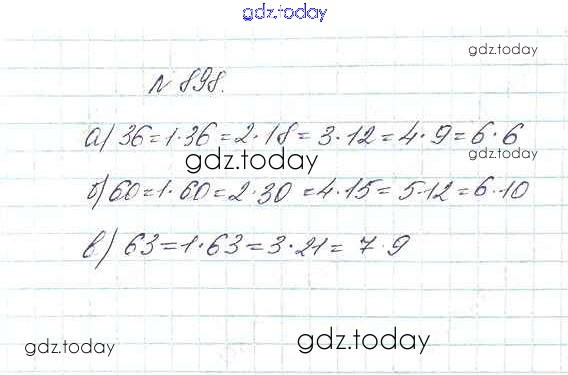 gdz.today
gdz.today
№ 898.
а) 36 = 1 · 36 = 2 · 18 = 3 · 12 = 4 · 9 = 6 · 6
gdz.today
gdz.today
б) 60 = 1 · 60 = 2 · 30 = 4 · 15 = 5 · 12 = 6 · 10
в) 63 = 1 · 63 = 3 · 21 = 7 · 9
gdz.today
gdz.today